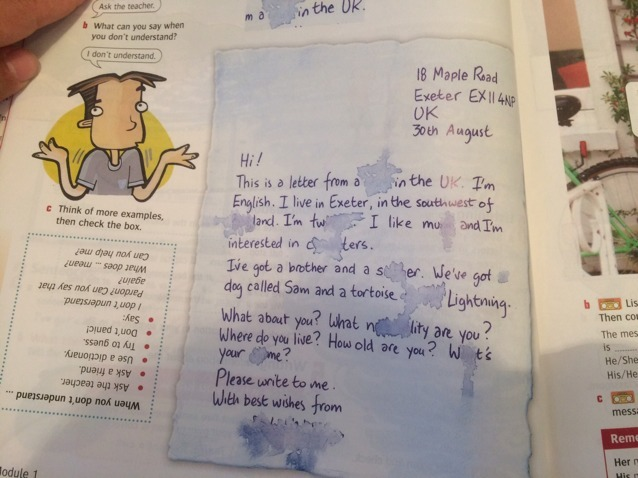 Ask the teacher.
m a in the UK.
b What can you say when
you don't understand?
I don't understand.
c Think of more examples,
then check the box.
When you don't understand ...
• Ask the teacher.
• Ask a friend.
• Use dictionary.
• Try to guess.
• Don't panic!
• Say:
I don't understand.
Pardon? Can you say that
again?
What does ... mean?
Can you help me?
odule 1
18 Maple Road
Exeter EX11 4NP
UK
30th August
Hi!
This is a letter from a in the UK. I'm
English. I live in Exeter, in the southwest of
land. I'm tw I like mu and I'm
interested in c ters.
I've got a brother and a s er. We've got
dog called Sam and a tortoise Lightning.
What about you? What n lity are you?
Where do you live? How old are you? W t's
your me?
Please write to me.
With best wishes from
b Lis
Then co
The mes
is
He/She
His/He
c
messa
Reme
Her n